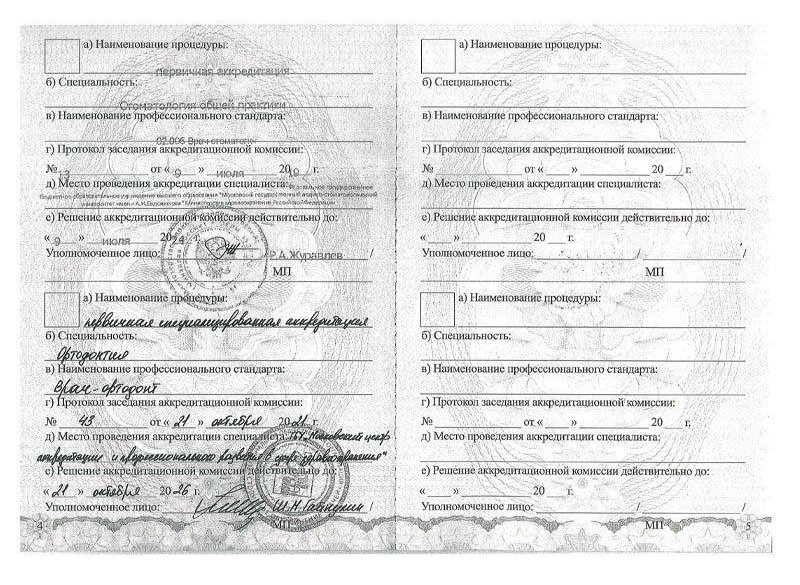 а) Наименование процедуры:
Первичная аккредитация
б) Специальность:
Стоматология общей практики
в) Наименование профессионального стандарта:
02.005 Врач-стоматолог
г) Протокол заседания аккредитационной комиссии:
№ 13 от « 9 » июля 2019 г.
д) Место проведения аккредитации специалиста: Федеральное государственное
бюджетное образовательное учреждение высшего образования "Московский государственный медико-стоматологический
университет имени А.И.Евдокимова" Министерства здравоохранения Российской Федерации
е) Решение аккредитационной комиссии действительно до:
« 9 » июля 2024 г.
Уполномоченное лицо: / Р.А.Журавлев /
МП
а) Наименование процедуры:
первичная специализированная аккредитация
б) Специальность:
Ортодонтия
в) Наименование профессионального стандарта:
Врач-ортодонт
г) Протокол заседания аккредитационной комиссии:
№ 43 от « 21 » октября 2021 г.
д) Место проведения аккредитации специалиста: "Московский центр
аккредитации и профессионального развития в сфере здравоохранения"
е) Решение аккредитационной комиссии действительно до:
« 21 » октября 2026 г.
Уполномоченное лицо: / Ш.М. Гайнулин /
МП
4
а) Наименование процедуры:
б) Специальность:
в) Наименование профессионального стандарта:
г) Протокол заседания аккредитационной комиссии:
№ от « » 20 г.
д) Место проведения аккредитации специалиста:
е) Решение аккредитационной комиссии действительно до:
« » 20 г.
Уполномоченное лицо: / /
МП
а) Наименование процедуры:
б) Специальность:
в) Наименование профессионального стандарта:
г) Протокол заседания аккредитационной комиссии:
№ от « » 20 г.
д) Место проведения аккредитации специалиста:
е) Решение аккредитационной комиссии действительно до:
« » 20 г.
Уполномоченное лицо: / /
МП
5